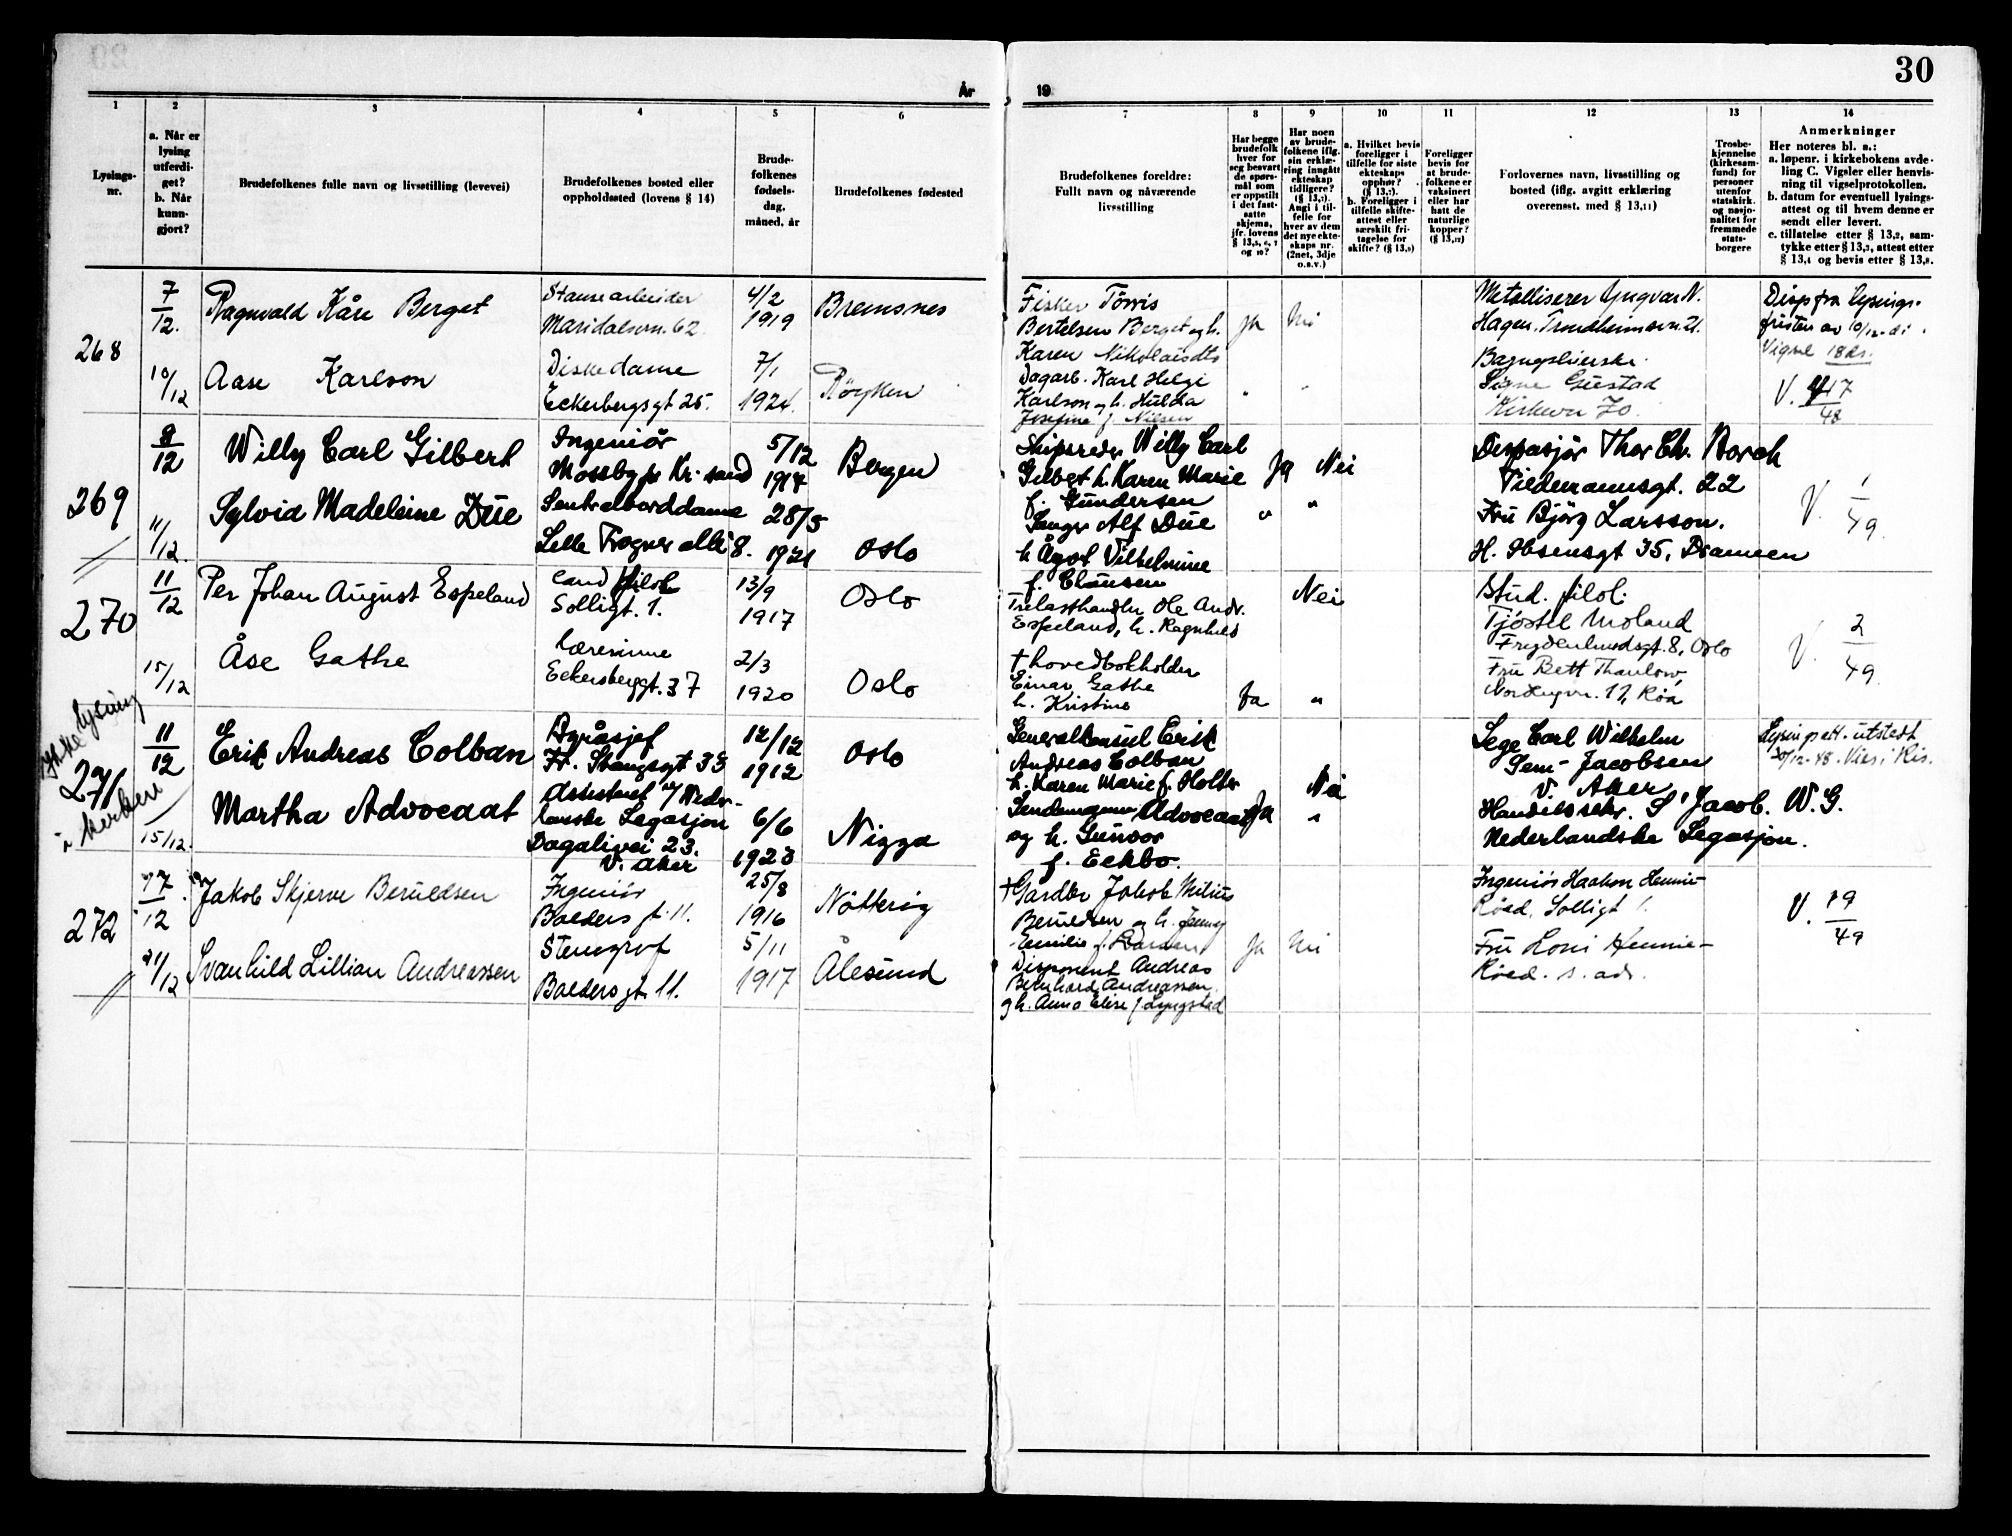 30
År
19
1
2
3
4
5
6
7
8
9
10
11
12
13
14
Lysings-
nr.
a. Når er
lysing
utferdi-
get?
b. Når
kunn-
gjort?
Brudefolkenes fulle navn og livsstilling (levevei)
Brudefolkenes bosted eller
oppholdssted (lovens § 14)
Brude-
folkenes
fødsels-
dag,
måned, år
Brudefolkenes fødested
Brudefolkenes foreldre:
Fullt navn og nåværende
livsstilling
Har begge
brudefolk
hver for
seg besvart
de spørs-
mål som
er oppstilt
i det fast-
satte
skjema,
jfr. lovens
§ 13,5, 6, 7
og 10?
Har noen
av brude-
folkene iflg.
sin erklæ-
ring inngått
ekteskap
tidligere?
(§ 13,7).
Angi i til-
felle for
hver av dem
det nye ekte-
skaps nr.
(2net, 3dje
o.s.v.)
a. Hvilket bevis
foreligger i
tilfelle for siste
ekteskaps
opphør?
(§ 13,7).
b. Foreligger i
tilfelle skifte-
attest eller
særskilt fri-
tagelse for
skifte? (§ 13,9)
Foreligger
bevis for
at brude-
folkene er
vaksinert
eller har
hatt de
naturlige
kopper?
(§ 13,12)
Forlovernes navn, livsstilling og
bosted (iflg. avgitt erklæring
overensst. med § 13,11)
Trosbe-
kjennelse
(kirkesam-
fund) for
personer
utenfor
statskirk.
og nasjo-
nalitet for
fremmede
stats-
borgere
Anmerkninger
Her noteres bl. a.:
a. løpenr. i kirkebokens avde-
ling C. Vigsler eller henvis-
ning til vigselprotokollen.
b. datum for eventuell lysings-
attest og til hvem denne er
sendt eller levert.
c. tillatelse etter § 13,2, sam-
tykke etter § 13,3, attest etter
§ 13,4 og bevis etter § 13,8.
268
7/12.
Ragnvald Kåre Berget
Stansearbeider
Maridalsvn. 62.
4/2
1919
Bremsnes
Fisker Törris
Bertelsen Berget og h.
Karen Nikolaisdtr
Ja
Nei
Metalliserer Yngvar N.
Hagen. Trondheimsvn. 21.
Disp fra lysings-
fristen av 10/12. di
Vigsel 18 ds.
10/12
Aase Karlson
Diskedame
Eckerbergsgt 25.
7/1
1924.
Röyken
Dagarb. Karl Helgi
Karlson og h. Hulda
Josefine f. Nilsen
"
"
Signe Gustad
Kirkevn 70.
V. 47/48
269
8/12
Willy Carl Gilbert
Ingeniör
Mossbygt Kr.sand
5/12
Bergen
Skipsreder Willy Carl
Gilbert h. Karen Marie
f. Gundersen
Ja
Nei
Dispasjör Thor Chr. Borch
Tidemannsgt. 22
V. 1/49.
11/12.
Sylvia Madeleine Due
Sentralborddame
Lille Frogner allé 8.
28/5
1921
Oslo
Sanger Alf Due
h Ågot Vilhelmine
f. Clausen
"
"
Fru Björg Larsson.
H. Ibsensgt 35, Drammen
270
11/12
Per Johan August Espeland
Cand filol
Solligt. 1.
13/9
1917
Oslo
Trelasthandler Ole Andr.
Espeland, h. Ragnhild
Nei
Stud. filol.
Tjöstel Moland
Frydenlundsgt. 8, Oslo
V. 2/49.
15/12
Åse Gathe
Lærerinne
Eckersberggt. 37
2/3
1920
Oslo
† hovedbokholder
Einar Gathe
h. Kristine
Ja
"
Fru Bett Thaulow,
11, Röa
Ikke lysing
i kirken
271
11/12
Erik Andreas Colban
Byråsjef
Fr. Stangsgt 33
12/12
1912
Oslo
Generalkonsul Erik
Andreas Colban
h. Karen Marie f. Holter
Nei
Lege Carl Wilhelm
Sem-Jacobsen
V. Aker
Lysingsatt. utstedt
20/12-48. Vies i Ris.
15/12.
Martha Advocaat
Assistent v/Neder-
lanske Legasjon
Dagalivei 23.
V. Aker
6/6
1923
Nizza
Sendemann Advocaat
og h. Gunvor
f. Eckbo.
Ja
"
Handelssekr. S' Jacob. W. G.
Nederlandske Legasjon.
272
17/12
Jakob Skjerve Beruldsen
Ingeniör
Baldersgt. 11.
25/8
1916
Nötteröy
† Gardbr Jakob Milius
Beruldsen og h. Jenny
Emilie f. Larsen
Ja
Nei
Ingeniör Haakon Hennie-
Röed, Solligt 1.
V. 19/49
21/12
Svanhild Lillian Andreassen
Stenograf
Baldersgt 11.
5/11
1917
Ålesund
Disponent Andreas
Bernhard Andreassen
og h. Anna Elise f. Lyngstad
Fru Loni Hennie-
Röed. s. adr.